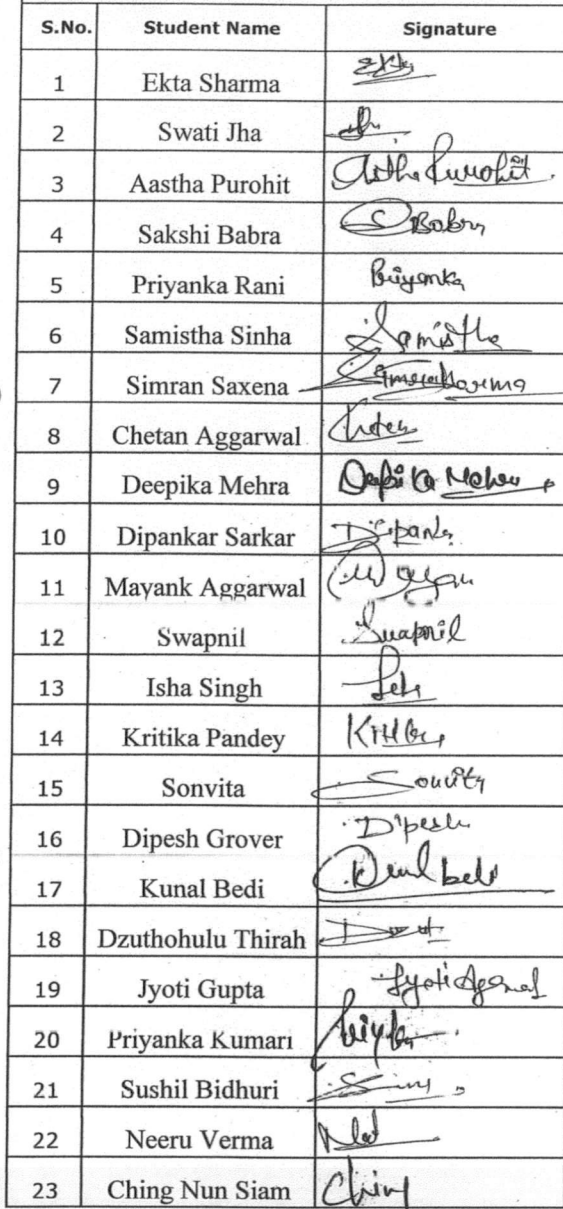 S.No. Student Name Signature
1 Ekta Sharma Ekta
2 Swati Jha
3 Aastha Purohit Astha Purohit
4 Sakshi Babra SBabra
5 Priyanka Rani Priyanka
6 Samistha Sinha Samistha
7 Simran Saxena Simran Sharma
8 Chetan Aggarwal Chetan
9 Deepika Mehra Deepika Mehra
10 Dipankar Sarkar Dipank
11 Mayank Aggarwal Mayan
12 Swapnil Swapnil
13 Isha Singh
14 Kritika Pandey
15 Sonvita Sonvita
16 Dipesh Grover Dipesh
17 Kunal Bedi Kunal bedi
18 Dzuthohulu Thirah
19 Jyoti Gupta Jyoti Agarwal
20 Priyanka Kumari
21 Sushil Bidhuri
22 Neeru Verma
23 Ching Nun Siam Ching